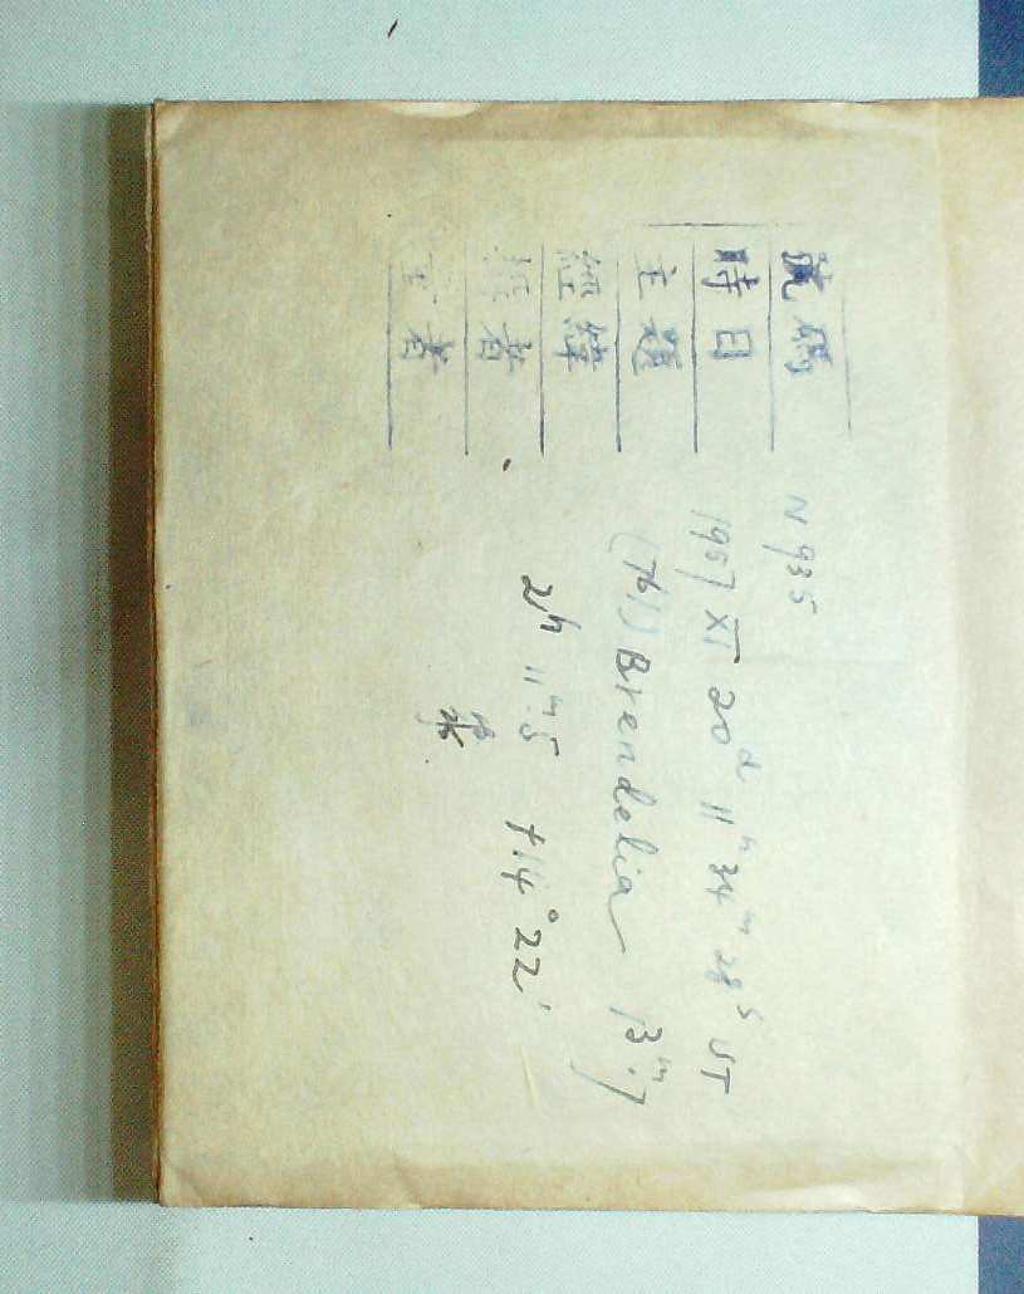 號碼 N 935
時日 1957 XI 20ᵈ 11ʰ 34ᵐ 28ˢ UT
主題 (761) Brendelia 13ᵐ.7
經緯 2ʰ 11ᵐ.5 +14°22'
者
者